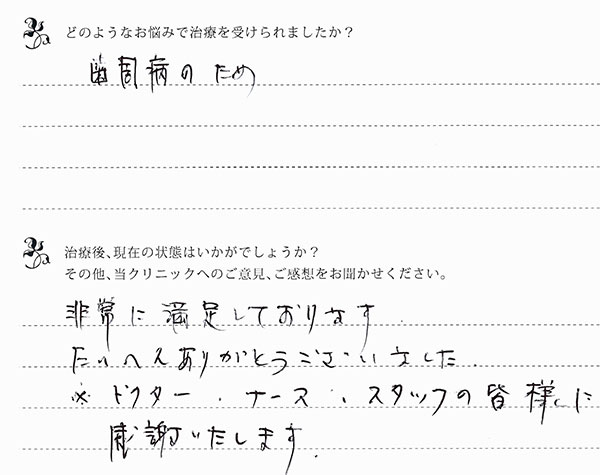 どのようなお悩みで治療を受けられましたか？
歯周病のため
治療後、現在の状態はいかがでしょうか？
その他、当クリニックへのご意見、ご感想をお聞かせください。
非常に満足しております.
たいへんありがとうございました.
※ ドクター、ナース、スタッフの皆様に
感謝いたします.